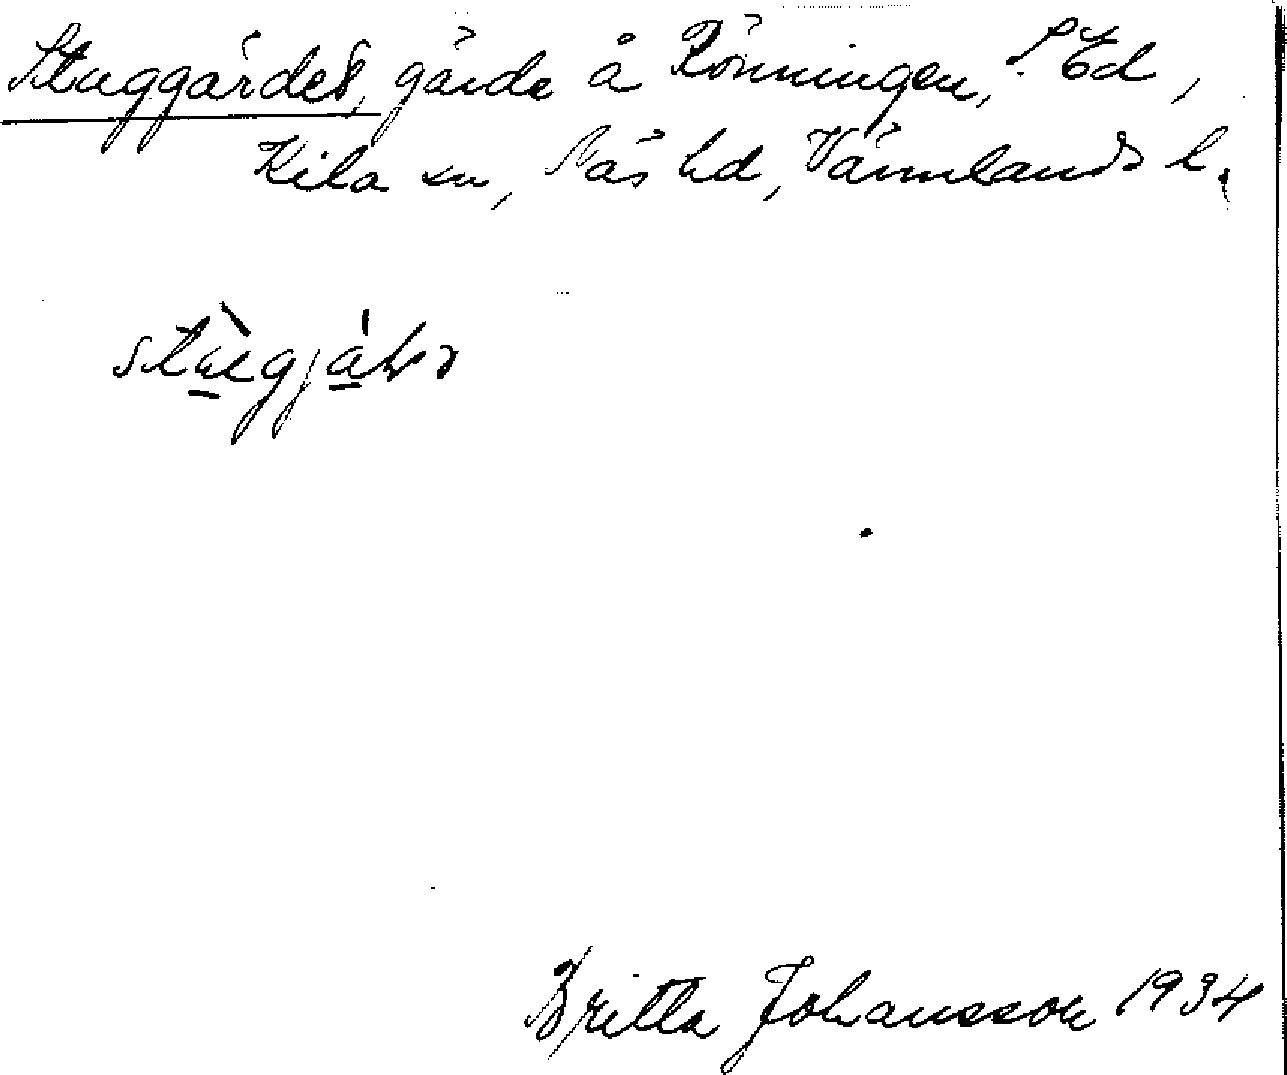 Stuggärdet, gärde å Rönningen, S. Ed,
Kila sn, Näs hd, Värmlands l.
Britta Johansson 1934